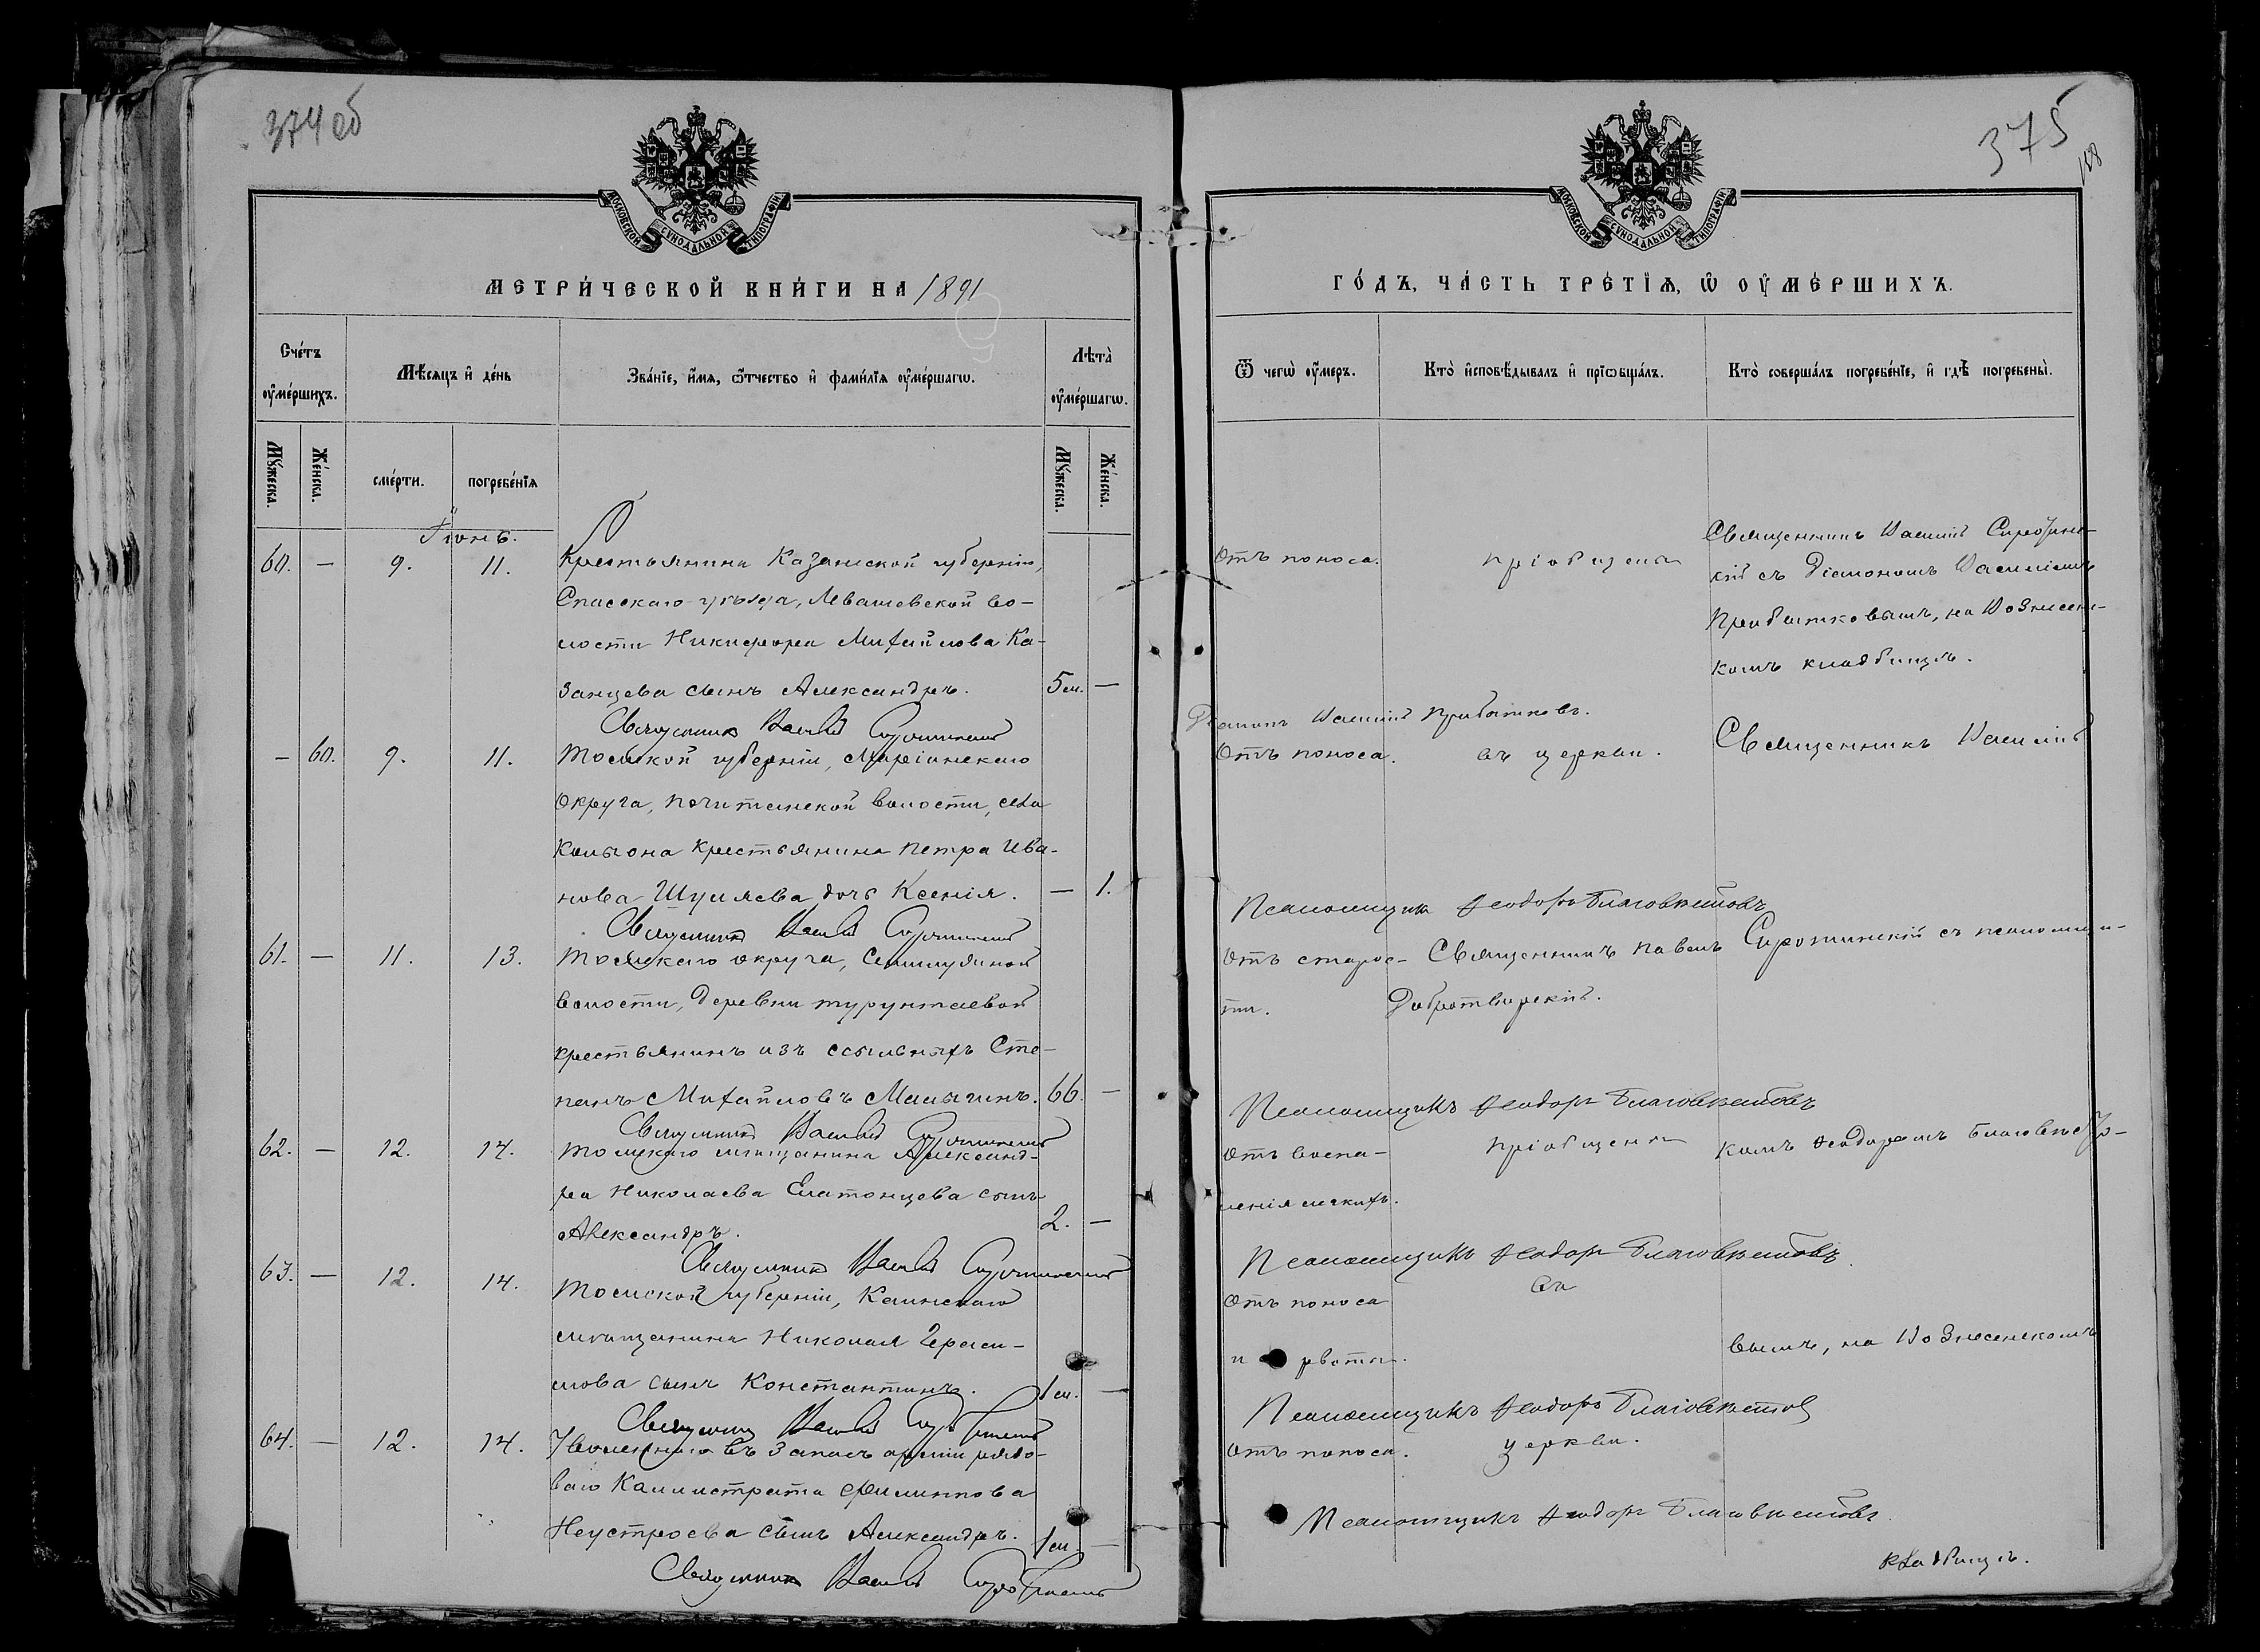 374 об
МОСКОВСКОЙ СУНОДАЛЬНОЙ ТИПОГРАФІИ
МЕТРИ́ЧЕСКОЙ КНИ́ГИ НА 1891
Сче́тъ оу҆ме́ршихъ.
Мѣ́сяцъ и҆ де́нь
Зва́нїе, и҆́мя, ѻ҆́тчество и҆ фами́лїя оу҆ме́ршагѡ.
Лѣта̀ оу҆ме́ршагѡ.
Мꙋ́жеска.
Же́нска.
сме́рти.
погребе́нїя
Мꙋ́жеска.
Же́нска.
Іюнь.
60. — 9. 11. Крестьянина Казанской губерніи,
Спасскаго уѣзда, Левашевской во-
лости Никифора Михайлова Ка-
занцева сынъ Александръ. 5 м. —
Священникъ Василій Сиротинскій
— 60. 9. 11. Томской губерніи, Маріинскаго
округа, Почитанской волости, села
Колыона крестьянина Петра Ива-
нова Шуляева дочь Ксенія. — 1.
Священникъ Василій Сиротинскій
61. — 11. 13. Томскаго округа, Семилужной
волости, деревни Турунтаевой
крестьянинъ изъ ссыльныхъ Сте-
панъ Михайловъ Малыгинъ. 66. —
Священникъ Василій Сиротинскій
62. — 12. 14. Томскаго мѣщанина Александ-
ра Николаева Елатонцева сынъ
Александръ. 2. —
Священникъ Василій Сиротинскій
63. — 12. 14. Томской губерніи, Каинскаго
мѣщанина Николая Гераси-
мова сынъ Константинъ. 1 м. —
Священникъ Василій Сиротинскій
64. — 12. 14. Уволеннаго въ запасъ арміи рядо-
ваго Каллистрата Филиппова
Неустроева сынъ Александръ. 1 м. —
Священникъ Василій Сиротинскій
375
158
МОСКОВСКОЙ СУНОДАЛЬНОЙ ТИПОГРАФІИ
ГО́ДЪ, ЧА́СТЬ ТРЕ́ТЇѦ, Ѡ҆ ОУ҆МЕ́РШИХЪ.
Ѿ чегѡ̀ оу҆́меръ.
Кто̀ и҆сповѣ́дывалъ и҆ прїѡбща́лъ.
Кто̀ соверша́лъ погребе́нїе, и҆ гдѣ̀ погребены̀.
Священникъ Василій Сиротинс-
Отъ поноса. Пріобщена
кій съ Діакономъ Василіемъ
Прибытковымъ, на Вознесенс-
комъ кладбищѣ.
Діаконъ Василій Прибытковъ.
Отъ поноса. въ церкви. Священникъ Василій
Псаломщикъ Ѳеодоръ Благовѣстовъ
Отъ старос- Священникъ Павелъ Сиротинскій съ псаломщи-
ти. Добротворскій.
Псаломщикъ Ѳеодоръ Благовѣстовъ
Отъ воспа- Пріобщенъ комъ Ѳеодоромъ Благовѣсто-
ленія легкихъ.
Псаломщикъ Ѳеодоръ Благовѣстовъ.
въ
Отъ поноса
и рвоты. вымъ, на Вознесенскомъ
Псаломщикъ Ѳеодоръ Благовѣстов
Отъ поноса. церкви.
Псаломщикъ Ѳеодоръ Благовѣстовъ.
кладбищѣ.